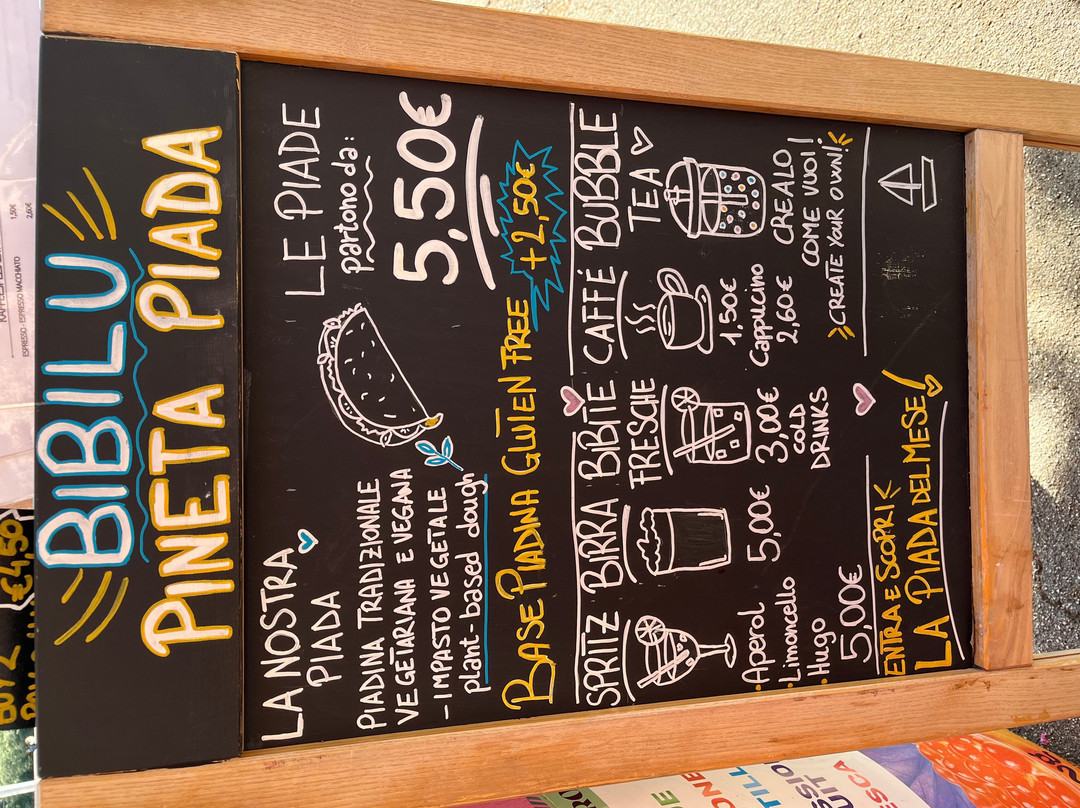 BIBILU
PINETA PIADA
LA NOSTRA
PIADA
PIADINA TRADIZIONALE
VEGETARIANA E VEGANA
- IMPASTO VEGETALE
plant-based dough
LE PIADE
partono da:
5,50€
BASE PIADINA GLUTEN FREE +2,50€
SPRITZ
• Aperol
• Limoncello
• Hugo
5,00€
BIRRA
5,00€
BIBITE
FRESCHE
3,00€
COLD
DRINKS
CAFFÉ
1,50€
Cappuccino
2,60€
BUBBLE
TEA
CREALO
COME VUOI!
CREATE YOUR OWN!
ENTRA E SCOPRI
LA PIADA DEL MESE!
ESPRESSO - ESPRESSO MACCHIATO
1,50€
2,60€
BUY 2
€4,50